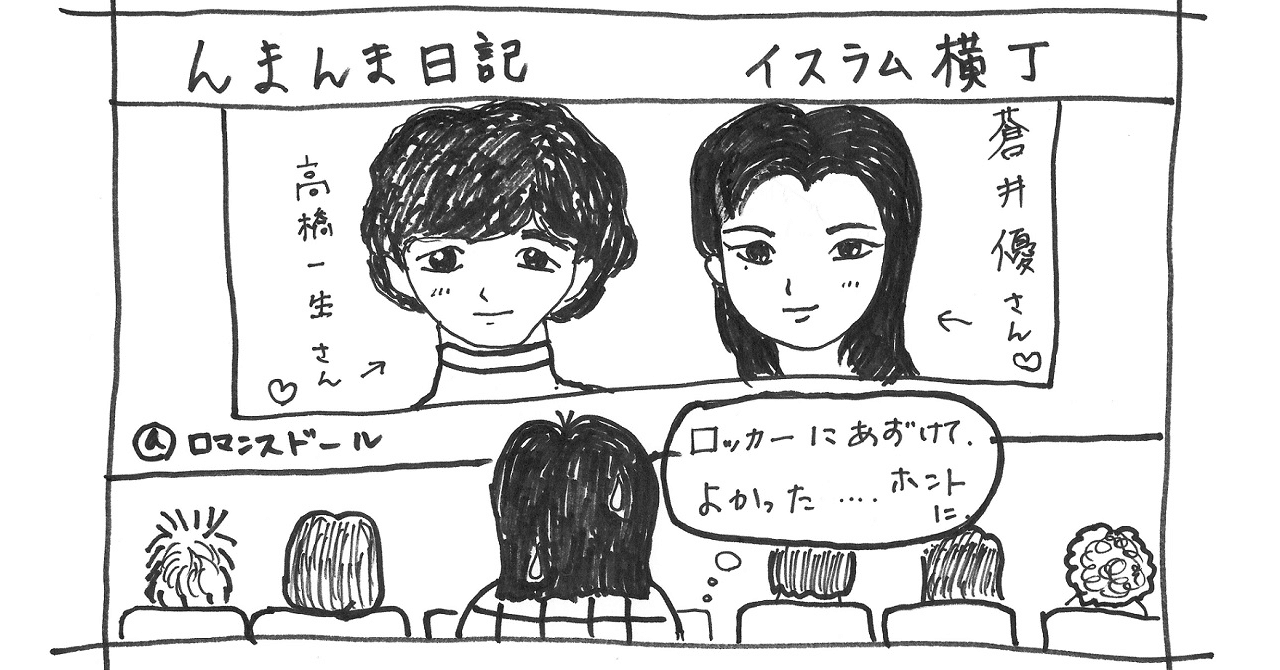 んまんま日記
イスラム横丁
高橋一生さん♡
蒼井優さん♡
@ロマンスドール
ロッカーにあずけて.
よかった....ホントに.